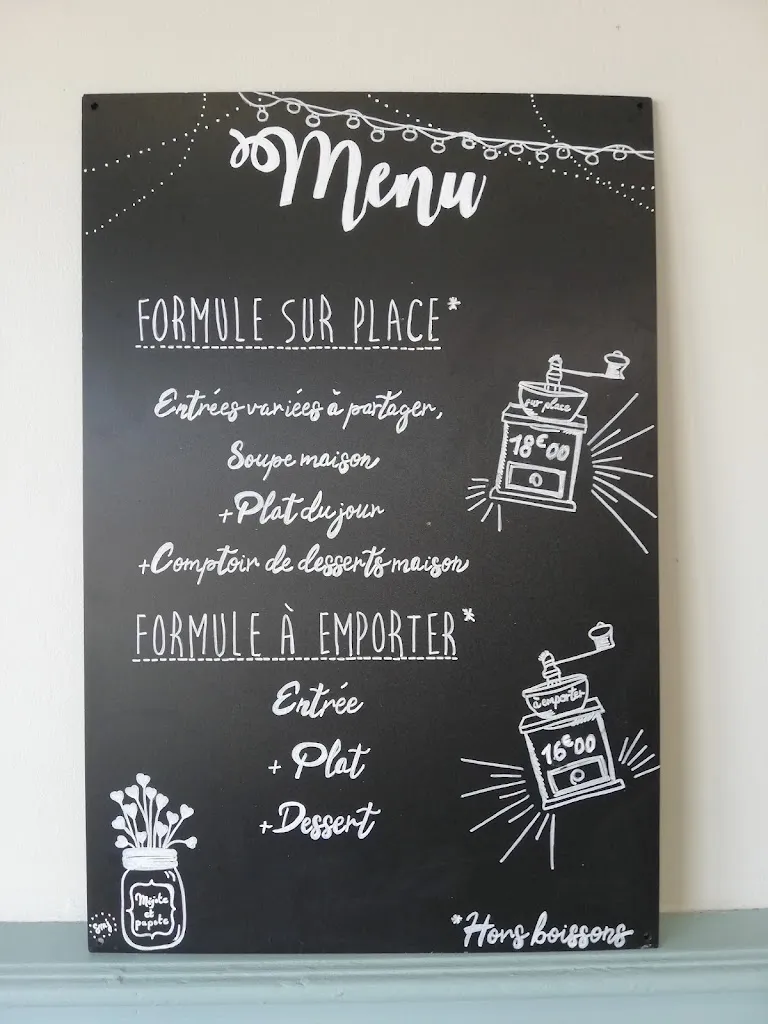 Menu
FORMULE SUR PLACE*
Entrées variées à partager,
Soupe maison
+Plat du jour
+Comptoir de desserts maison
sur place
18€00
FORMULE À EMPORTER*
Entrée
+ Plat
+Dessert
à emporter
16€00
Mijote
et
papote
*Hors boissons